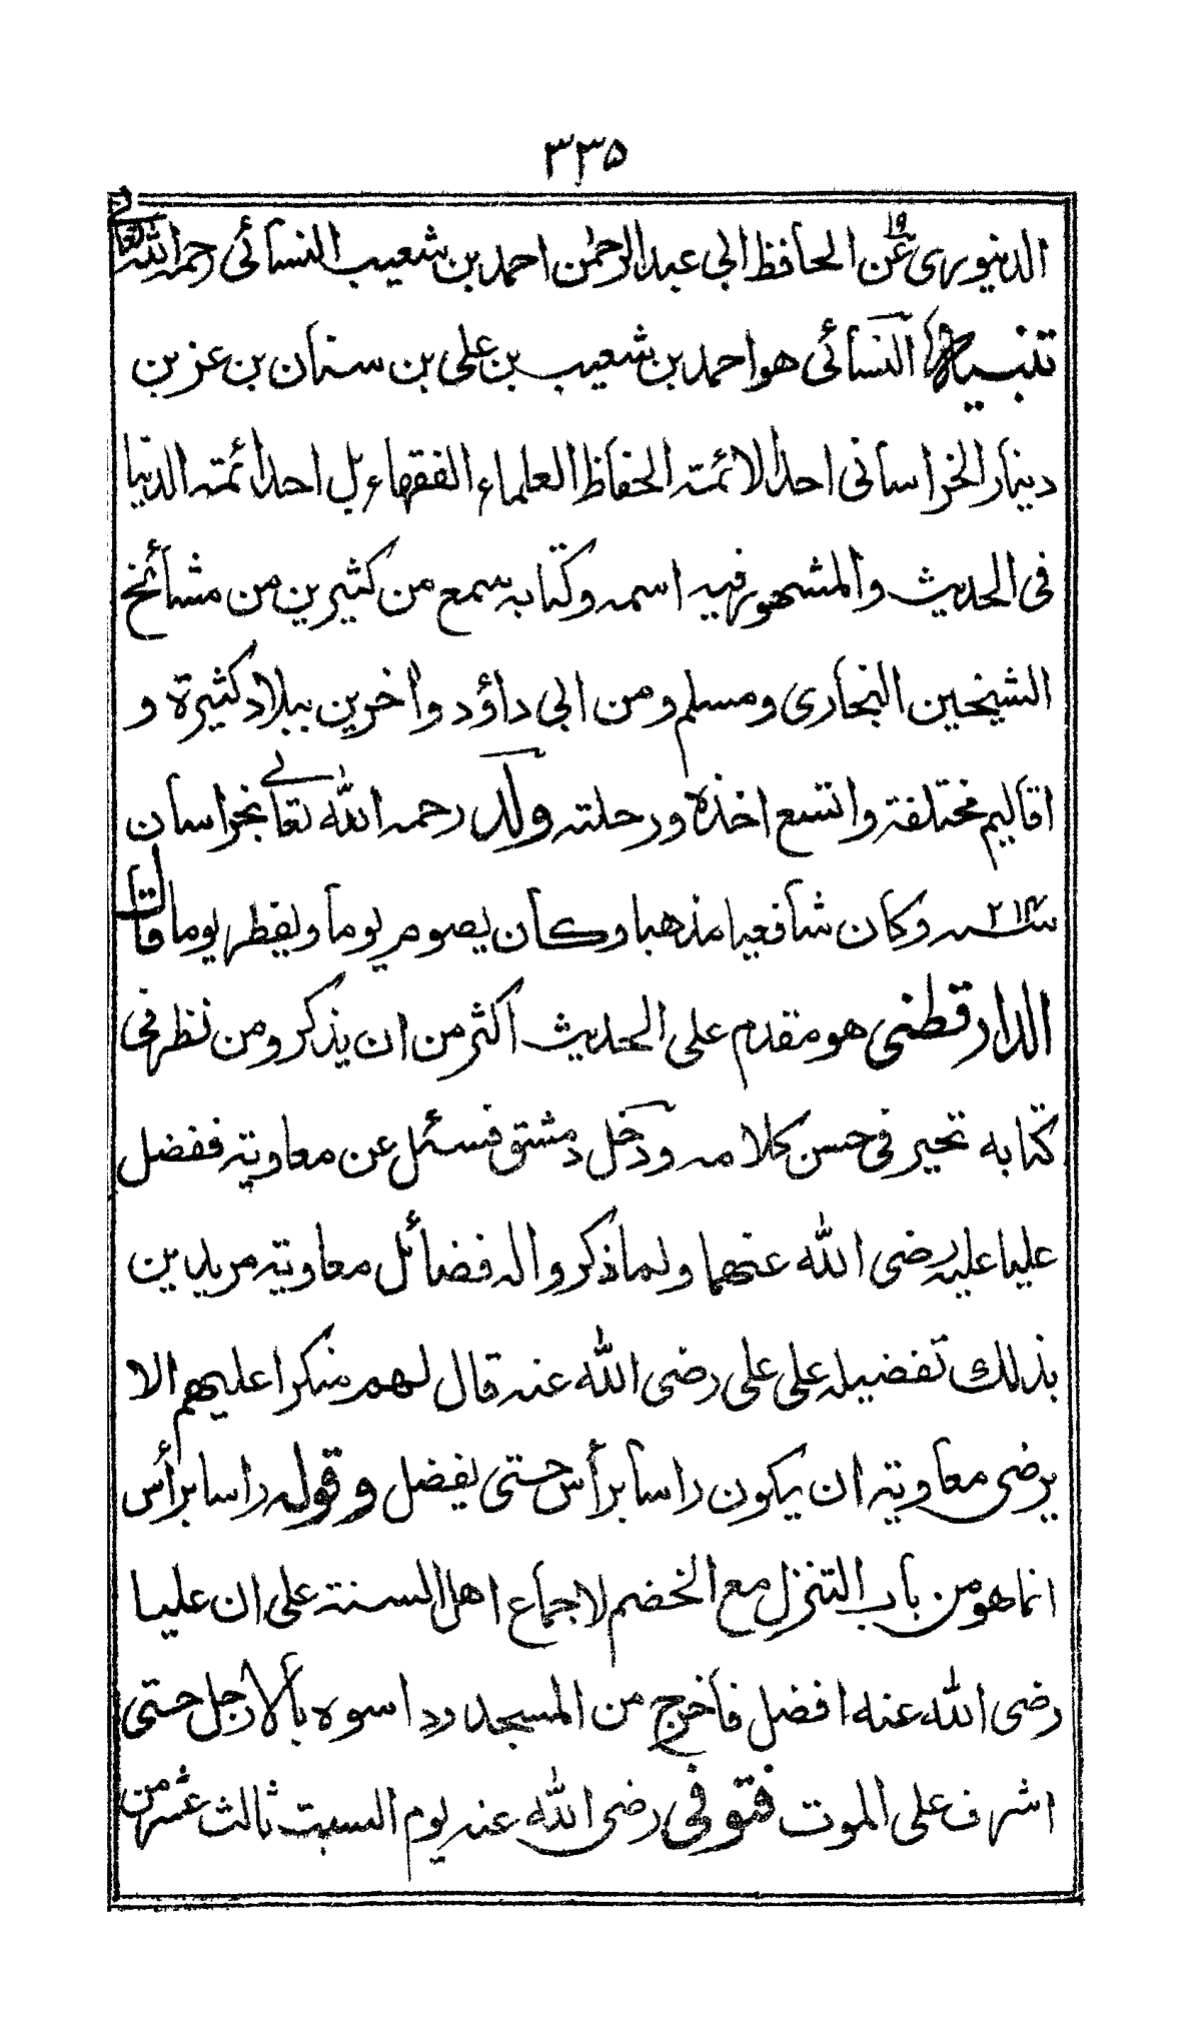 ۳۳۵
الدنيوري عن ۱۹ الحافظ ابي عبد الرحمٰن احمد بن شعيب النسائی رحمه الله تعالے
تنبيه النسائی هو احمد بن شعيب بن علی بن سنان بن عز بن
دينار الخراسانی احد الائمة الحفاظ العلماء الفقهاء بل احد ائمة الدنيا
فی الحديث والمشهور فيه اسمه وكتابه سمع من كثيرين من مشائخ
الشيخين البخاری ومسلم ومن ابی داؤد واٰخرين ببلاد كثيرة و
اقاليم مختلفة واتسع اخذه ورحلته ولد رحمه الله تعالے بخراسان
سنة ۲۱۴ وكان شافعيا مذهبا وكان يصوم يوما ويفطر يوما قال
الدارقطنی هو مقدم علی الحديث اكثر من ان يذكر ومن نظر فی
كتابه تحير فی حسن كلامه ودخل دمشق فسئل عن معاوية ففضل
عليا عليه رضی الله عنهما ولما ذكروا له فضائل معاوية مريدين
بذلك تفضيله علی علی رضی الله عنه قال لهم منكرا عليهم الا
يرضی معاوية ان يكون راسا برأس حتی يفضل وقوله راسا برأس
انما هو من باب التنزل مع الخضم لاجماع اهل السنة علی ان عليا
رضی الله عنه افضل فاخرج من المسجد وداسوه بالارجل حتی
اشرف علی الموت فتوفی رضی الله عنه يوم السبت ثالث عشر من